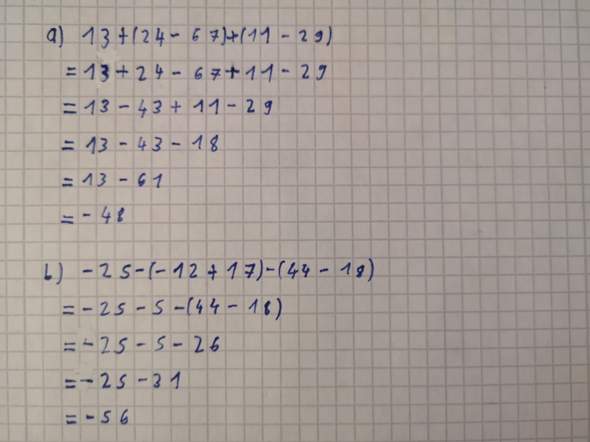 a) 13+(24-67)+(11-29)
=13+24-67+11-29
=13-43+11-29
=13-43-18
=13-61
=-48
b) -25-(-12+17)-(44-18)
=-25-5-(44-18)
=-25-5-26
=-25-31
=-56